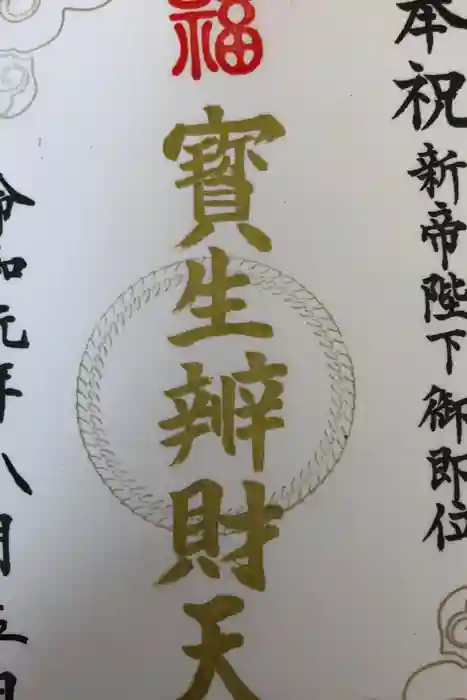 奉祝新帝陛下御即位
福
寳生辨財天
令和元年八月五日